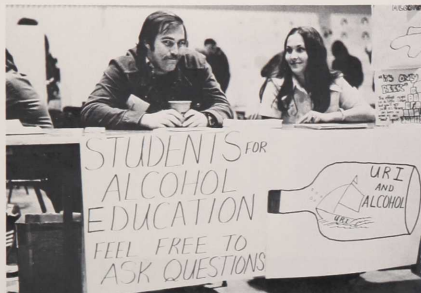 STUDENTS FOR
ALCOHOL
EDUCATION
FEEL FREE TO
ASK QUESTIONS
URI
AND
ALCOHOL